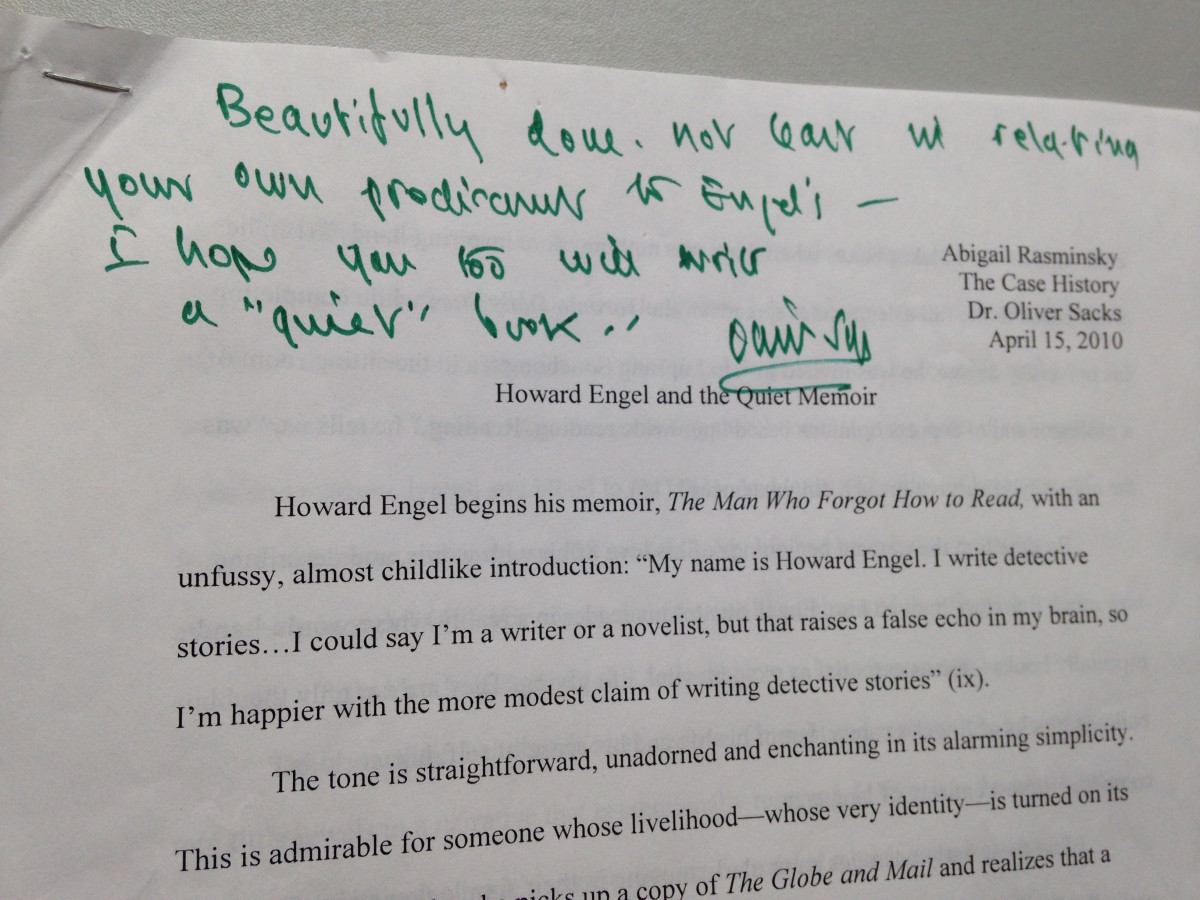 Beautifully done. not least in relating
your own predicament to Engel's —
I hope you too will write
a "quiet" book..
Abigail Rasminsky
The Case History
Dr. Oliver Sacks
April 15, 2010
Howard Engel and the Quiet Memoir
Howard Engel begins his memoir, The Man Who Forgot How to Read, with an
unfussy, almost childlike introduction: “My name is Howard Engel. I write detective
stories…I could say I’m a writer or a novelist, but that raises a false echo in my brain, so
I’m happier with the more modest claim of writing detective stories” (ix).
The tone is straightforward, unadorned and enchanting in its alarming simplicity.
This is admirable for someone whose livelihood—whose very identity—is turned on its
picks up a copy of The Globe and Mail and realizes that a